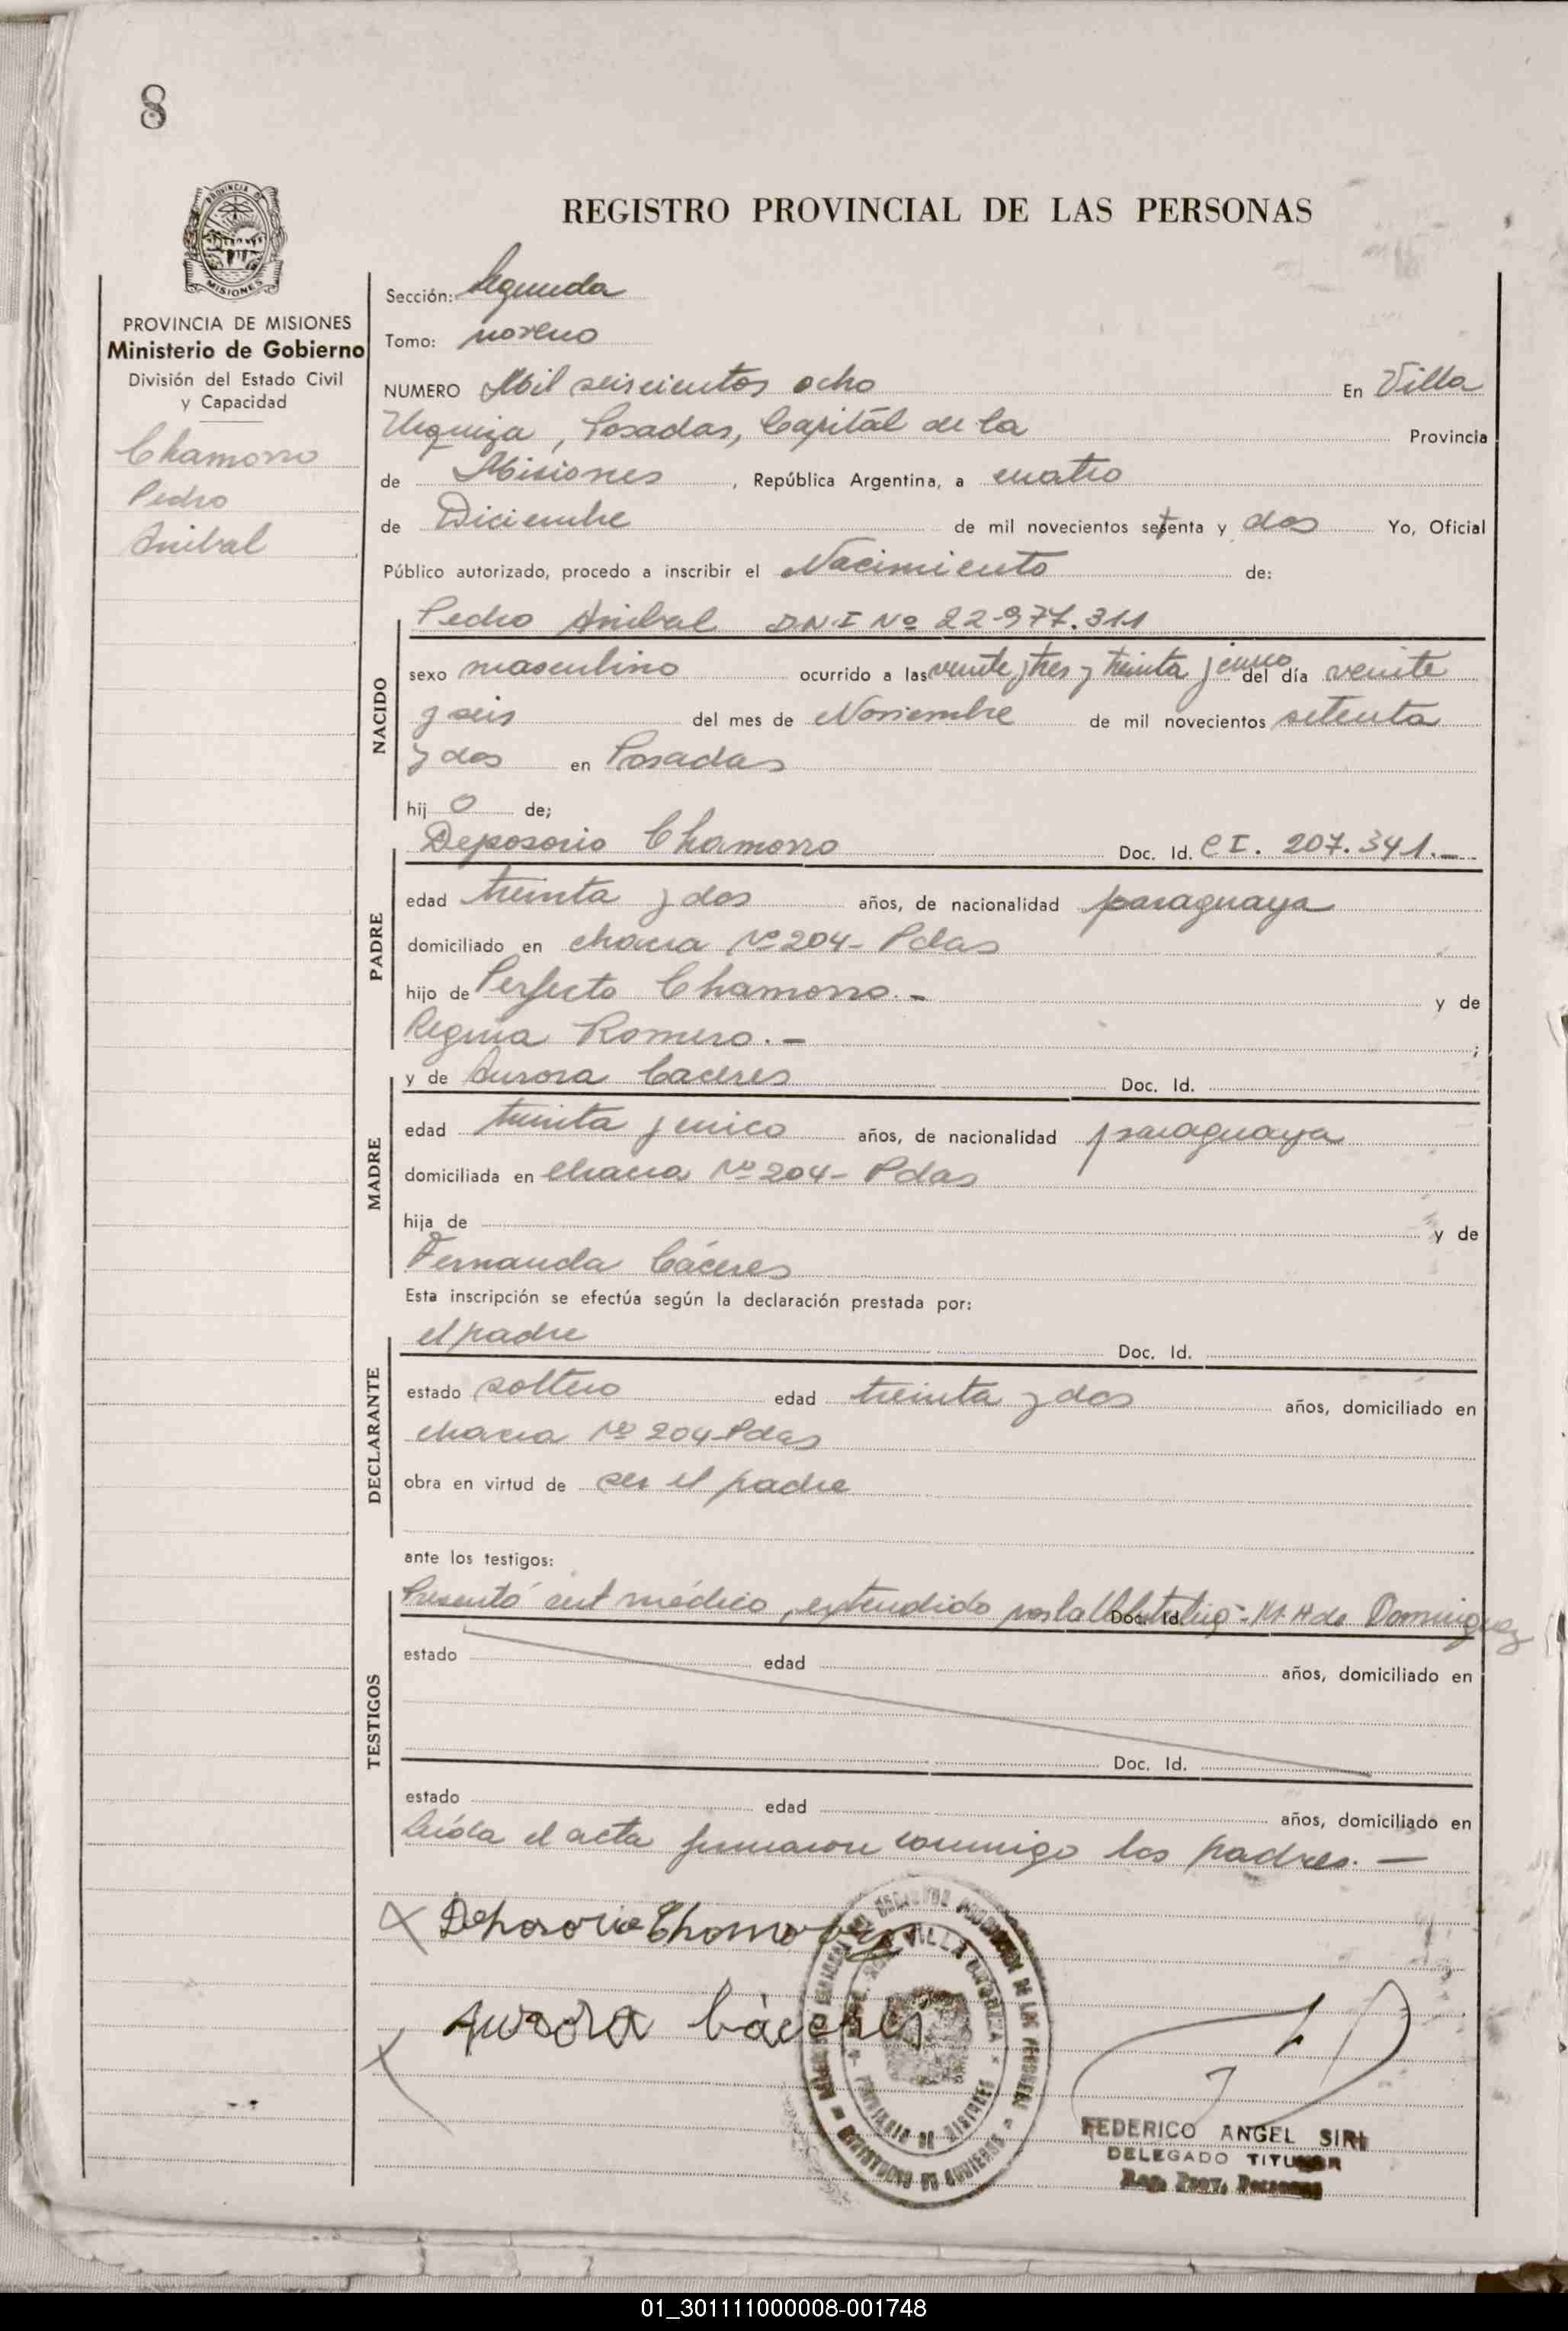 8
PROVINCIA DE MISIONES
Ministerio de Gobierno
División del Estado Civil
y Capacidad
Chamorro
Pedro
Anibal
REGISTRO PROVINCIAL DE LAS PERSONAS
Sección: Segunda
Tomo: noveno
NUMERO Mil seiscientos ocho En Villa
Urquiza, Posadas, Capitál de la Provincia
de Misiones, República Argentina, a cuatro
de Diciembre de mil novecientos setenta y dos Yo, Oficial
Público autorizado, procedo a inscribir el Nacimiento de:
NACIDO
Pedro Anibal DNI Nº 22-977.311
sexo masculino ocurrido a las veinte y tres y treinta y cinco del día veinte
y seis del mes de Noviembre de mil novecientos setenta
y dos en Posadas
hijo de;
PADRE
Deposorio Chamorro Doc. Id. CI. 207.341.-
edad treinta y dos años, de nacionalidad paraguaya
domiciliado en chacra Nº 204- Pdas
hijo de Perfecto Chamorro.- y de
Regina Romero.- ;
MADRE
y de Aurora Caceres Doc. Id.
edad treinta y cinco años, de nacionalidad paraguaya
domiciliada en chacra Nº 204- Pdas
hija de y de
Fernanda Cáceres
Esta inscripción se efectúa según la declaración prestada por:
DECLARANTE
el padre Doc. Id.
estado soltero edad treinta y dos años, domiciliado en
chacra Nº 204-Pdas
obra en virtud de ser el padre
ante los testigos:
TESTIGOS
Presentó cert médico, extendido por la Doc. Id. M. H de Dominguez
estado edad años, domiciliado en
Doc. Id.
estado edad años, domiciliado en
Leída el acta firmaron conmigo los padres.-
Deposorio Chamorro
Aurora Cáceres
VILLA URQUIZA
PROVINCIA DE MISIONES
MINISTERIO DE GOBIERNO
FEDERICO ANGEL SIRI
DELEGADO TITULAR
Reg. Prov. Personas
01_301111000008-001748